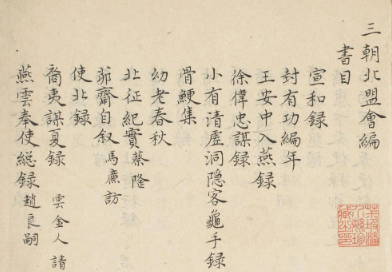 三朝北盟會編
書目
宣和録
封有功編年
王安中入燕録
徐偉忠謀録
小有清虚洞隐客龜手録
骨鯁集
幼老春秋
北征紀實 蔡絛
茆齋自叙 馬廣訪
使北録
裔夷謀夏録 雲金人請
燕雲奉使總録 趙良嗣